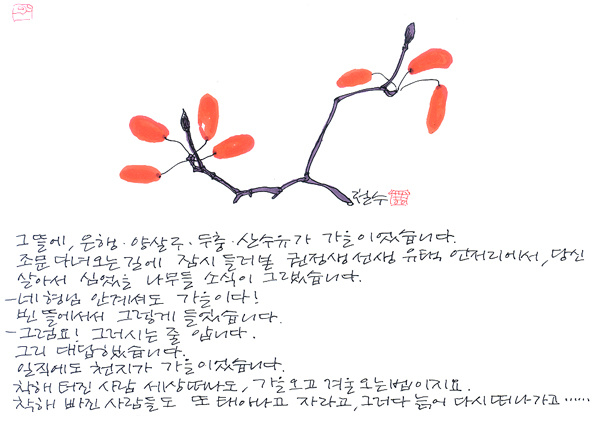 철수
그 뜰에, 은행·양살구·두충·산수유가 가을이었습니다.
조문 다녀오는 길에 잠시 들러본 권정생선생 유택 언저리에서, 당신
살아서 심었을 나무들 소식이 그랬습니다.
-네 형님 안계셔도 가을이다!
빈 뜰에서서 그렇게 들었습니다.
-그럼요! 그러시는 줄 압니다.
그리 대답했습니다.
일직에도 천지가 가을이었습니다.
착해 터진 사람 세상떠나도, 가을오고 겨울오는법이지요.
착해 빠진 사람들도 또 태어나고 자라고, 그러다 늙어 다시 떠나가고……